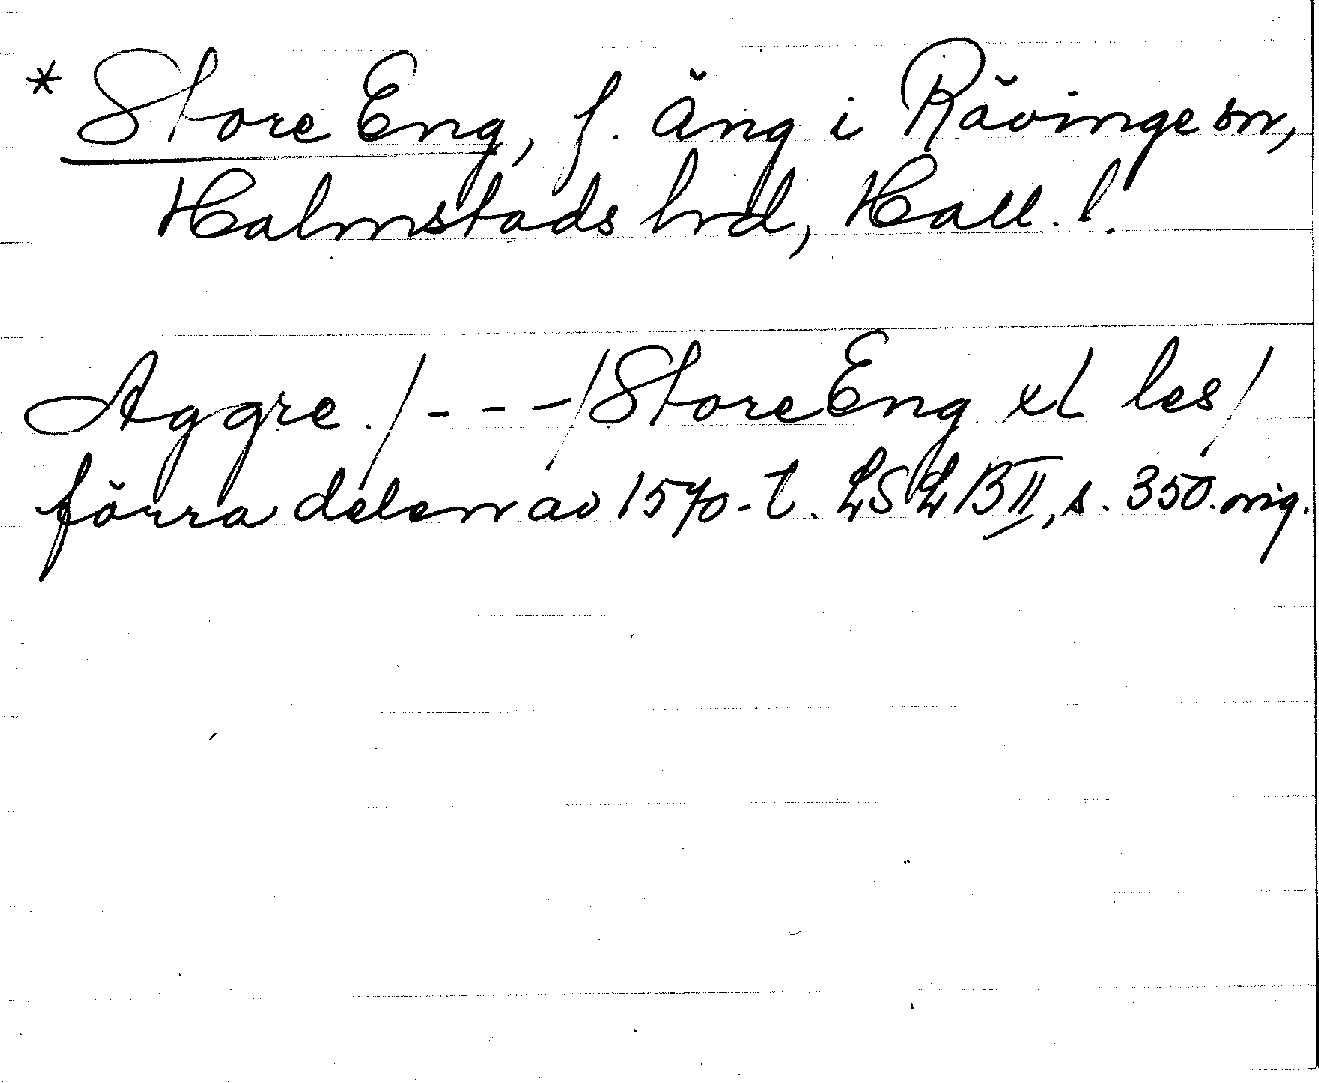 * Store Eng, f. äng i Rävinge sn,
Halmstads hrd, Hall. l.
Aggre /---/ Store Eng xl les/
förra delen av 1570-t. LSLB II, s. 350. orig.